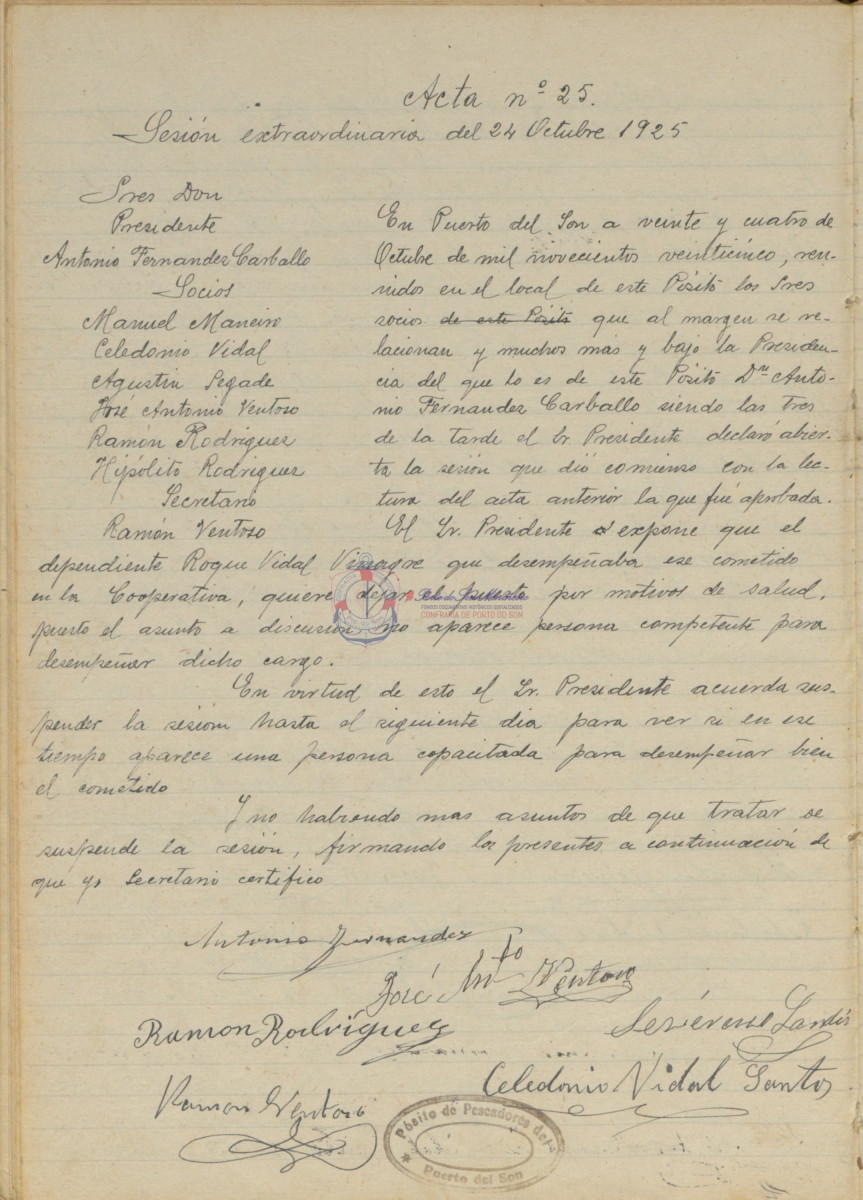 Acta nº 25.
Sesión extraordinaria del 24 Octubre 1925
Sres Don
Presidente
Antonio Fernandez Carballo
Socios
Manuel Maneiro
Celedonio Vidal
Agustin Segade
José Antonio Ventoso
Ramón Rodriguez
Hipólito Rodriguez
Secretario
Ramón Ventoso
En Puerto del Son a veinte y cuatro de
Octubre de mil novecientos veinticinco, reu-
nidos en el local de este Pósito los Sres
socios de este Pósito que al margen se re-
lacionan y muchos mas y bajo la Presiden-
cia del que lo es de este Pósito Dn Anto-
nio Fernandez Carballo siendo las tres
de la tarde el Sr. Presidente declaró abier-
ta la sesión que dió comienso con la lec-
tura del acta anterior la que fué aprobada.
El Sr. Presidente expone que el
dependiente Roque Vidal Vinagre que desempeñaba ese cometido
en la Cooperativa, quiere dejar el puesto por motivos de salud,
puesto el asunto a discusión no aparece persona competente para
desempeñar dicho cargo.
En virtud de esto el Sr. Presidente acuerda sus-
pender la sesión hasta el siguiente dia para ver si en ese
tiempo aparece una persona capacitada para desempeñar bien
el cometido
Y no habiendo mas asuntos de que tratar se
suspende la sesión, firmando los presentes a continuación de
que yo Secretario certifico
FONDOS DOCUMENTAIS HISTÓRICOS DIXITALIZADOS
CONFRARÍA DE PORTO DO SON
Antonio Fernandez
José Anto Ventoso
Ramon Rodríguez
Celedonio Vidal Santos
Ramon Ventoso
Pósito de Pescadores de
Puerto del Son